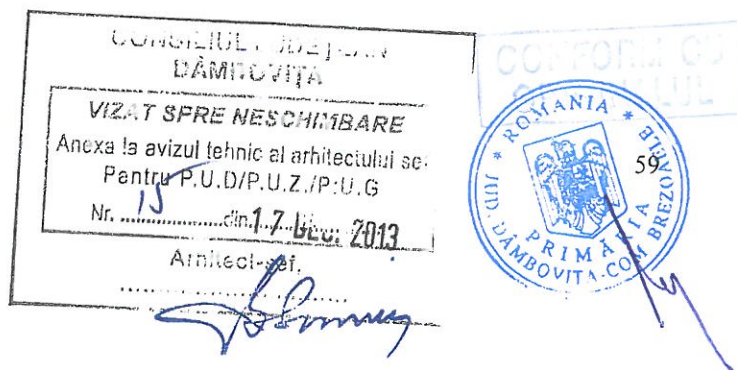 CONSILIUL JUDEȚEAN
DÂMBOVIȚA
VIZAT SPRE NESCHIMBARE
Anexa la avizul tehnic al arhitectului șef
Pentru P.U.D/P.U.Z./P.U.G
Nr. ....15....din.17 DEC. 2013
Arhitect-șef,
CONFORM CU
ORIGINALUL
* ROMANIA *
JUD. DÂMBOVITA-COM BREZOAELE
PRIMĂRIA
59